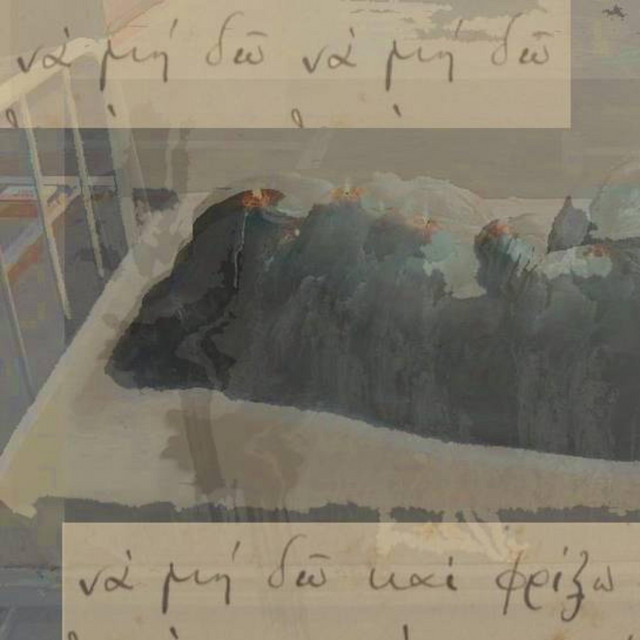 νὰ μή δῶ νὰ μή δῶ
νὰ μή δῶ καί φρίξω